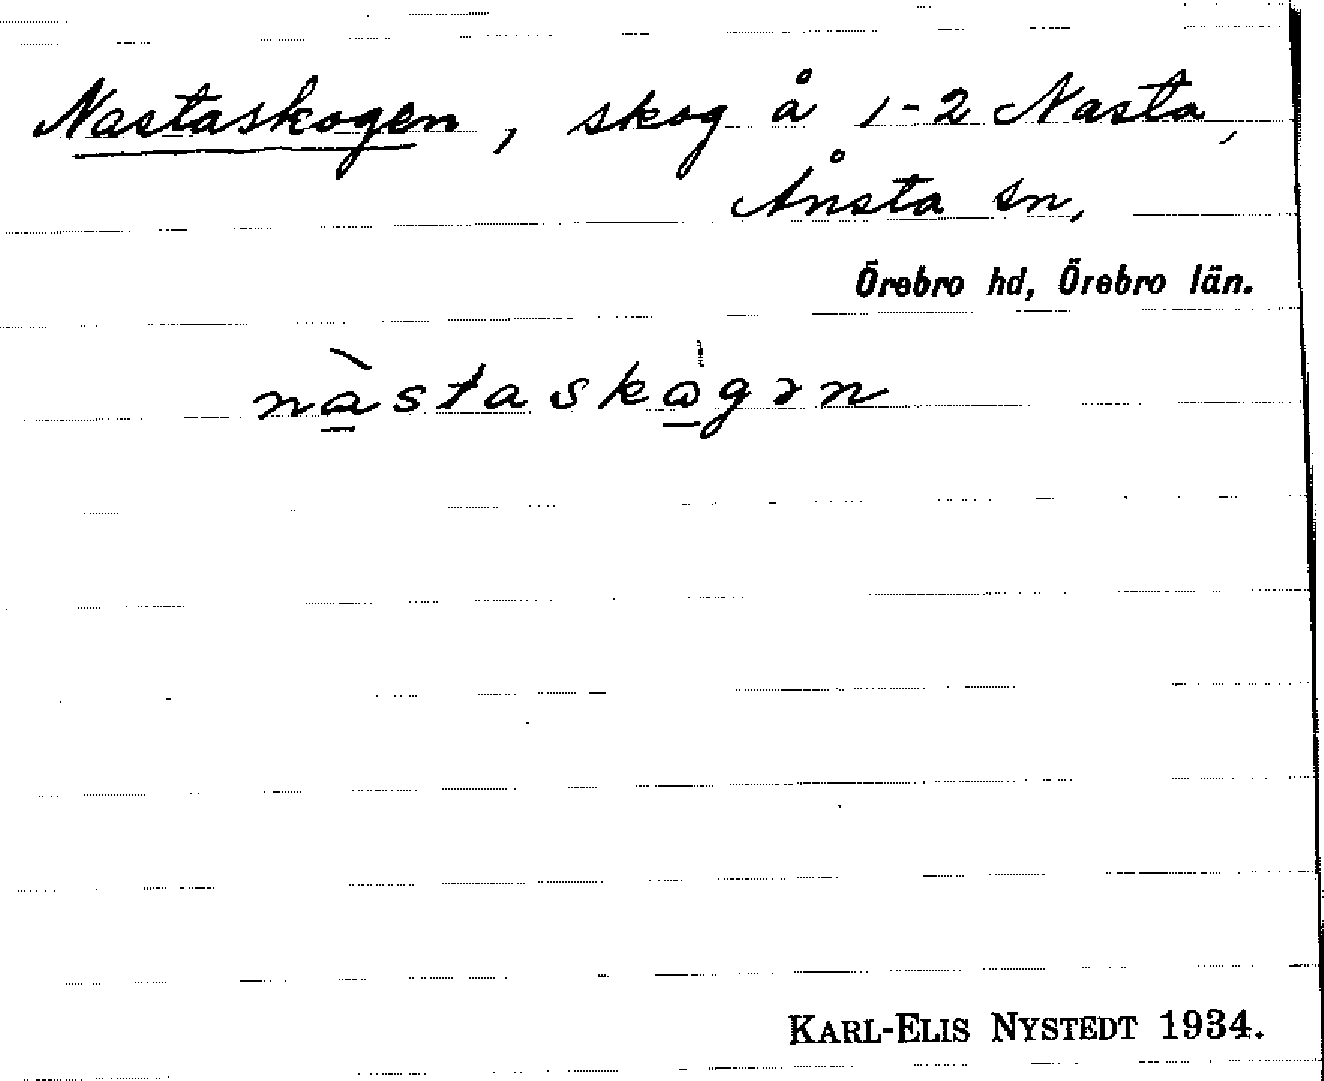 Nastaskogen, skog å 1-2 Nasta,
Ånsta sn,
Örebro hd, Örebro län.
nàstaskògən
KARL-ELIS NYSTEDT 1934.